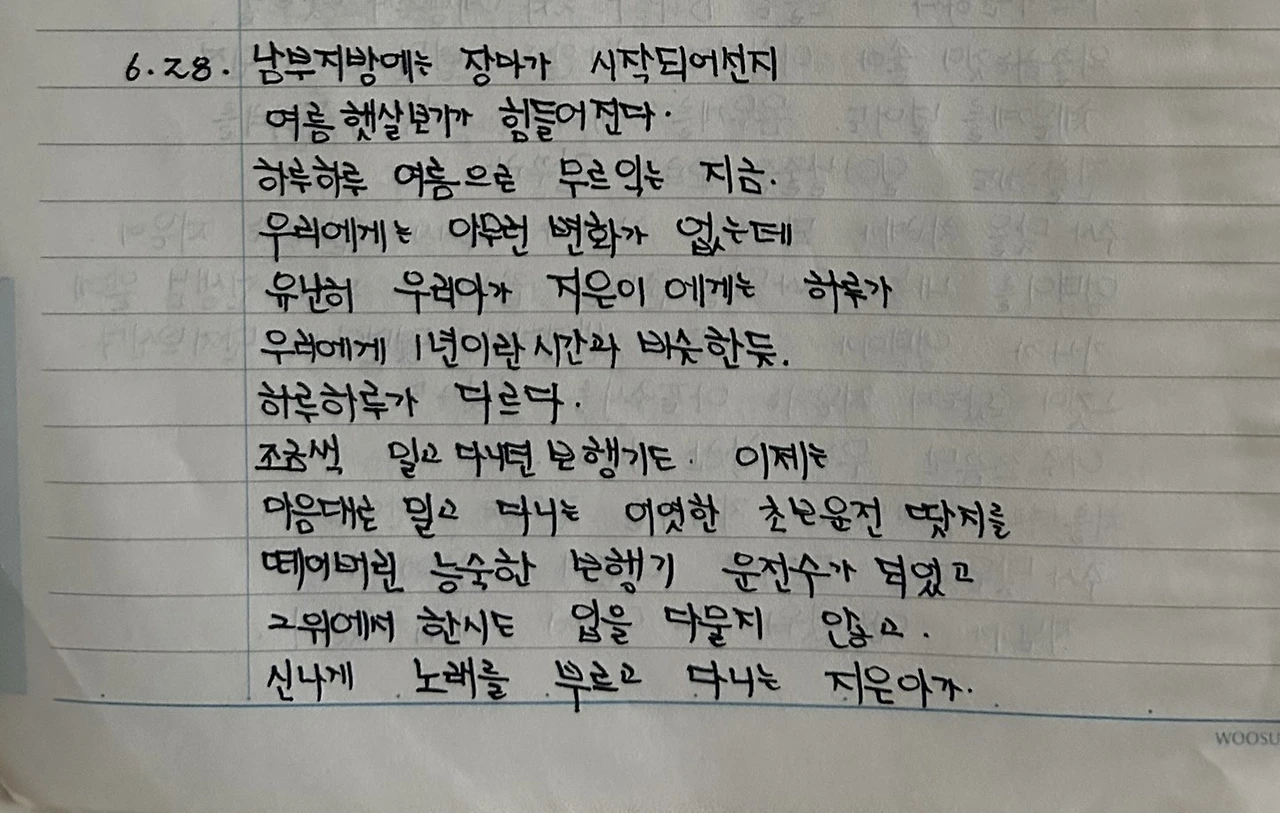 6.28. 남부지방에는 장마가 시작되어선지
여름 햇살보기가 힘들어진다.
하루하루 여름으로 무르익는 지금.
우리에게는 아무런 변화가 없는데
유난히 우리아가 지은이에게는 하루가
우리에게 1년이란 시간과 비슷한듯.
하루하루가 다르다.
조금씩 밀고 다니던 보행기도. 이제는
마음대로 밀고 다니는 어엿한 초보운전 딱지를
떼어버린 능숙한 보행기 운전수가 되었고
그위에서 한시도 입을 다물지 않고.
신나게 노래를 부르고 다니는 지은아가.
WOOSU